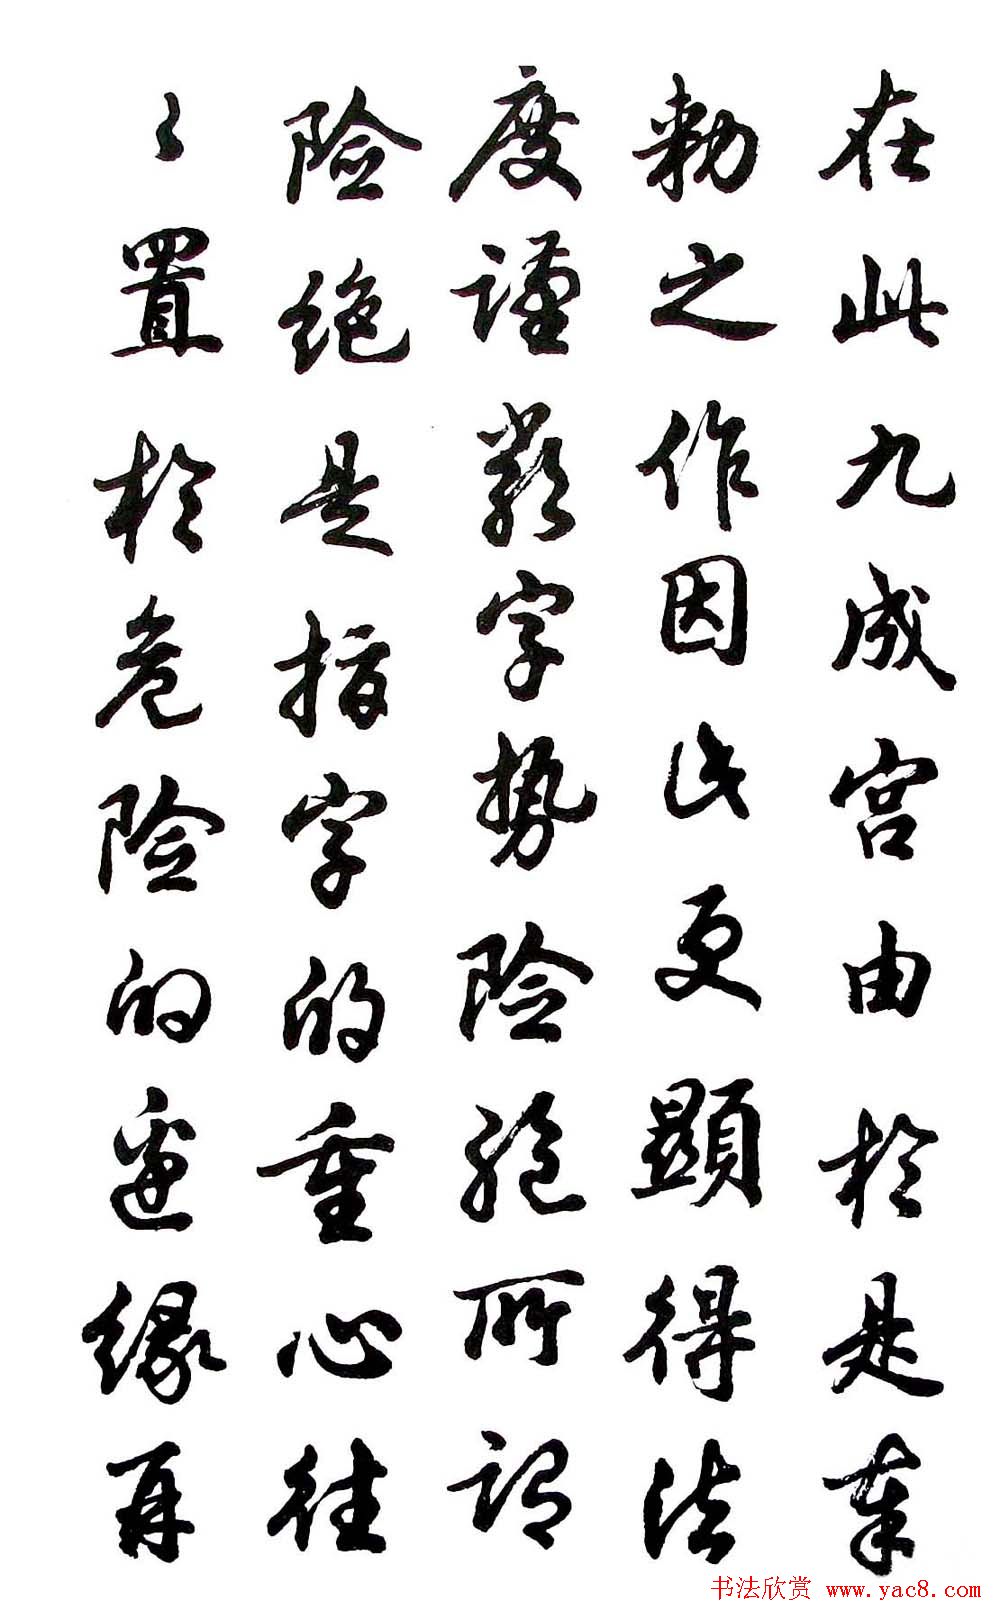 在此九成宫由於是奉
勅之作因此更顯得法
度謹严字势险绝所谓
险绝是指字的重心往
々置於危险的边缘再
书法欣赏 www.yac8.com